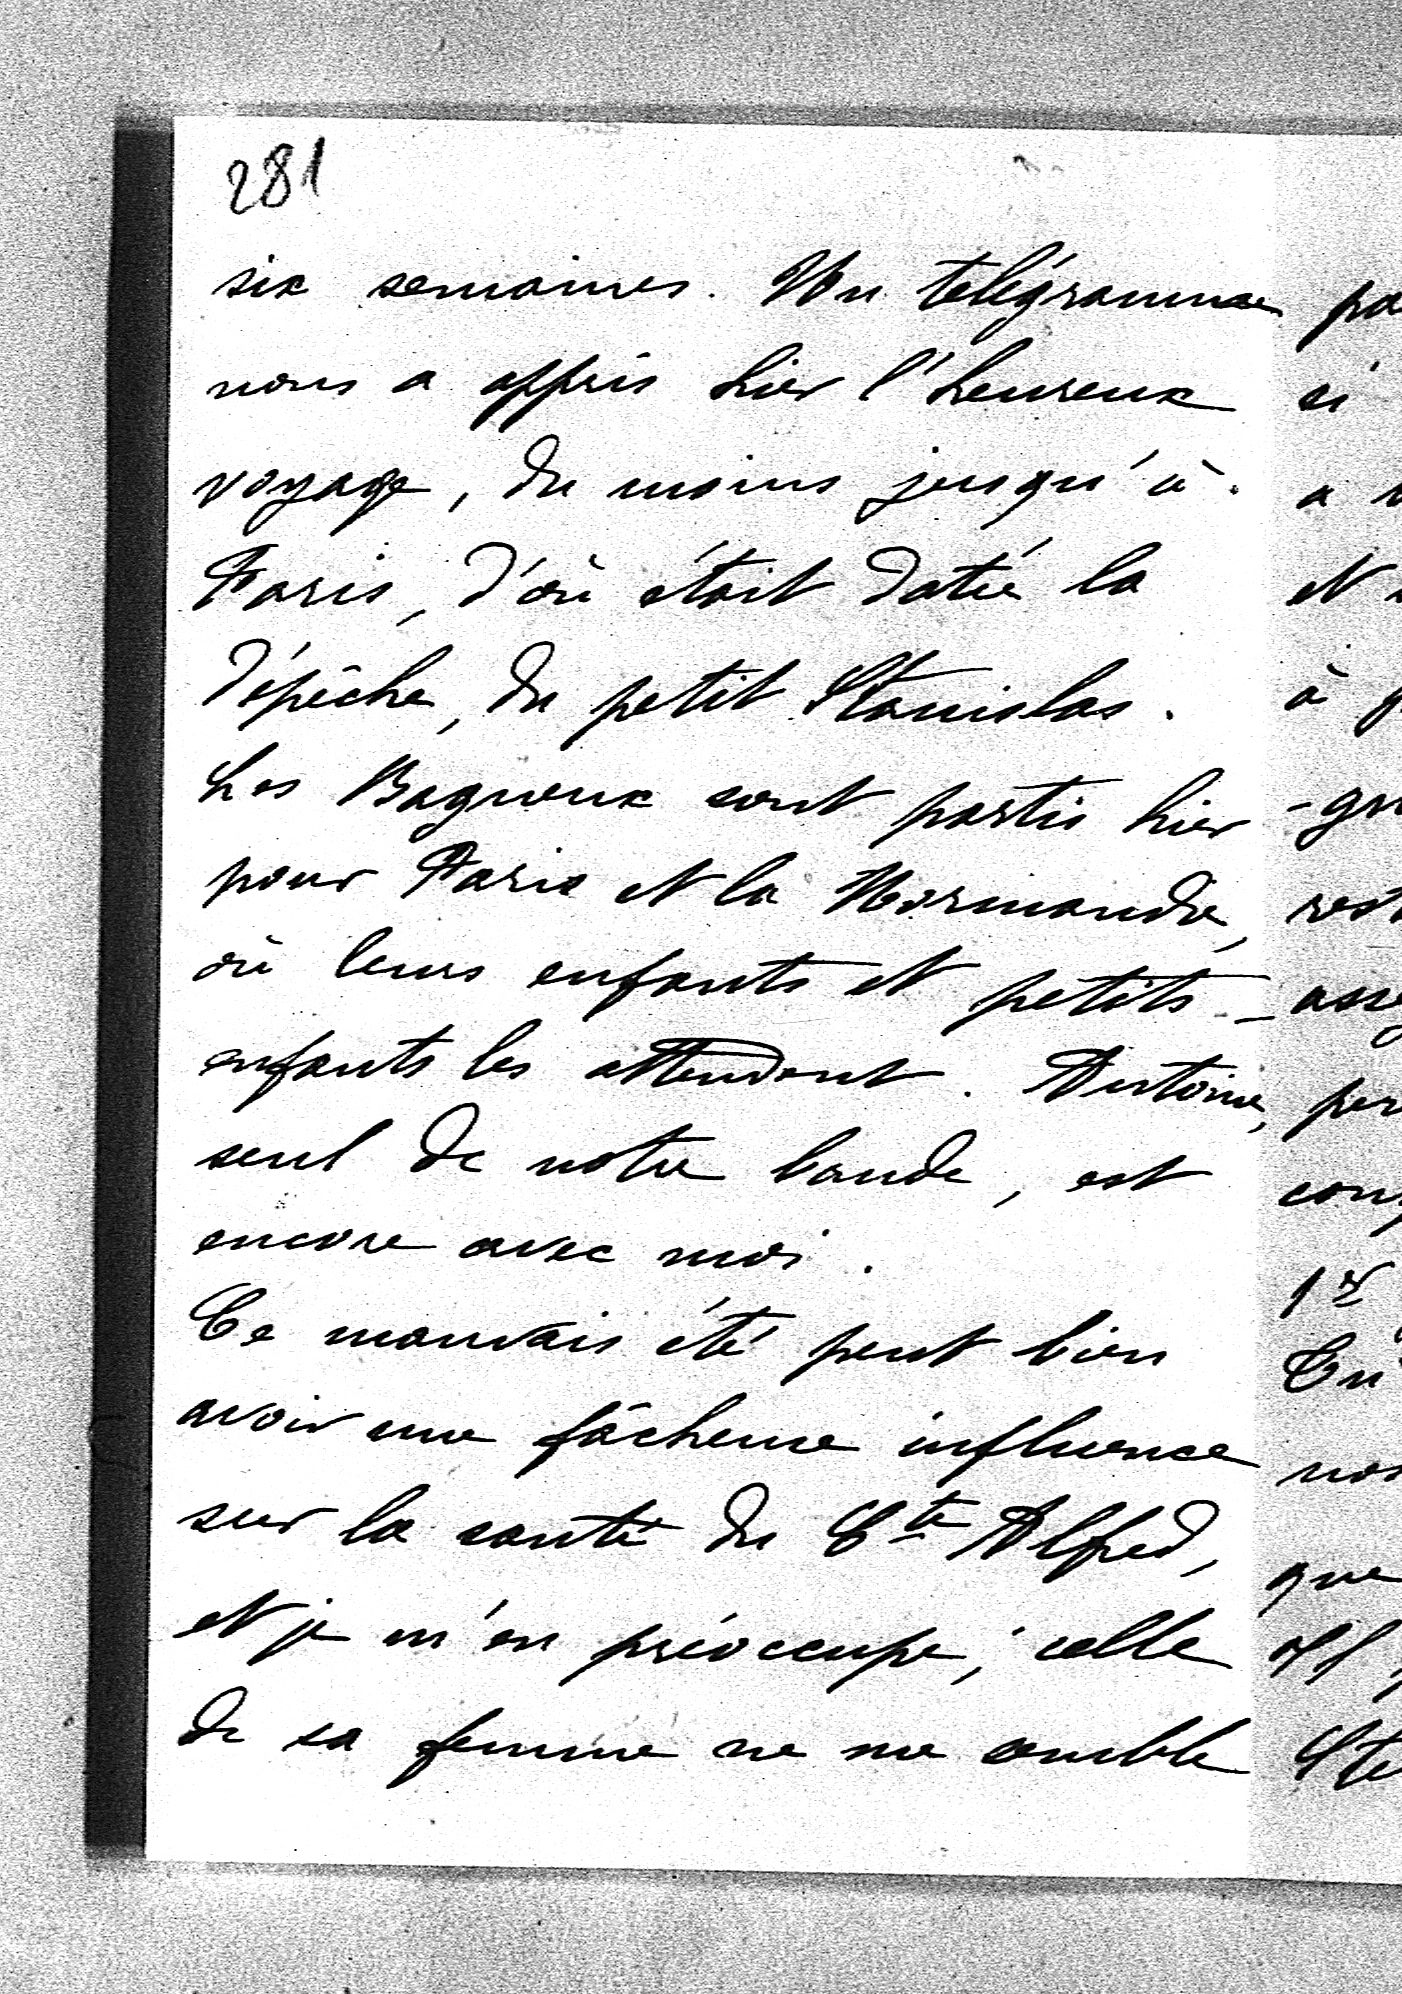 281
six semaines. Un télégramme
nous a appris hier l'heureux
voyage, du moins jusqu'à
Paris, d'où était datée la
dépêche, du petit Stanislas.
Les Bagneux sont partis hier
pour Paris et la Normandie,
où leurs enfants et petits-
enfants les attendent. Antoine,
seul de notre bande, est
encore avec moi.
Ce mauvais été peut bien
avoir une fâcheuse influence
sur la santé du Cte Alfred,
et je m'en préoccupe; celle
de sa femme ne me semble
pa
si
a
et
à
-gn
rest
asse
per
1er
nos
que
Il
Ste